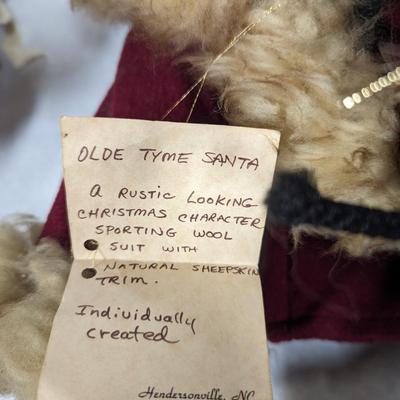 OLDE TYME SANTA
A RUSTIC LOOKING
CHRISTMAS CHARACTER
SPORTING WOOL
SUIT WITH
NATURAL SHEEPSKIN
TRIM.
Individually
created
Hendersonville, NC